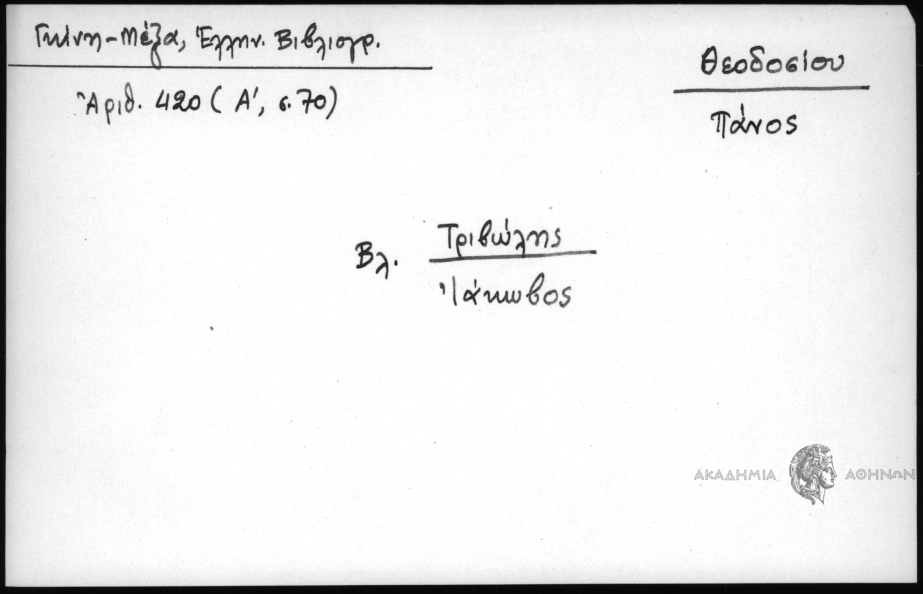 Γκίνη-Μέξα, Ἑλλην. Βιβλιογρ.
Ἀριθ. 420 (Α', σ. 70)
Θεοδοσίου
Πάνος
Βλ. Τριβώλης
Ἰάκωβος
ΑΚΑΔΗΜΙΑ ΑΘΗΝΩΝ